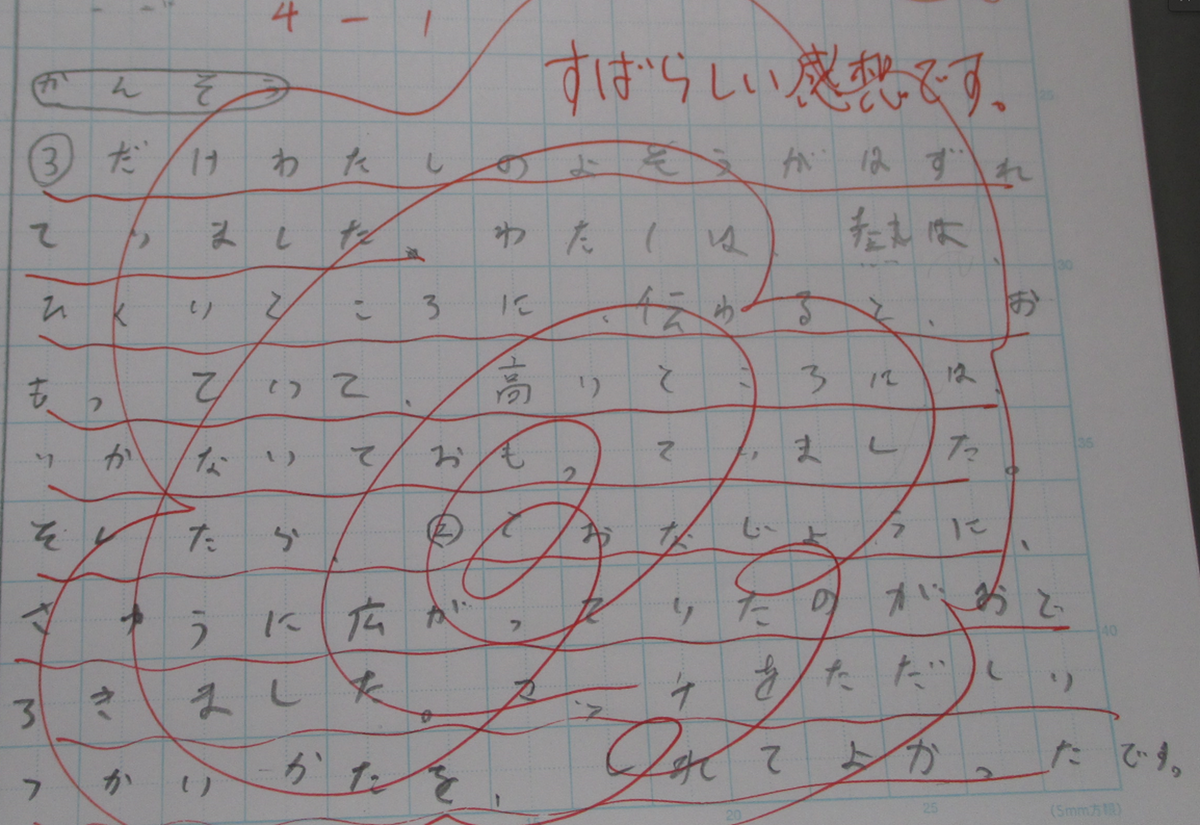 4-1
すばらしい感想です。
かんそう
③だけわたしのよそうがはずれ
ていました。わたしは、
ひくいところに、伝わると、お
もっていて、高いところには、
いかないておもっていました
そしたら②とおなじように、
さゆうに広がっていたのがおど
ろきました。
つかいかたを、しれてよかったです。
25
30
35
40
20
25
(5mm方眼)